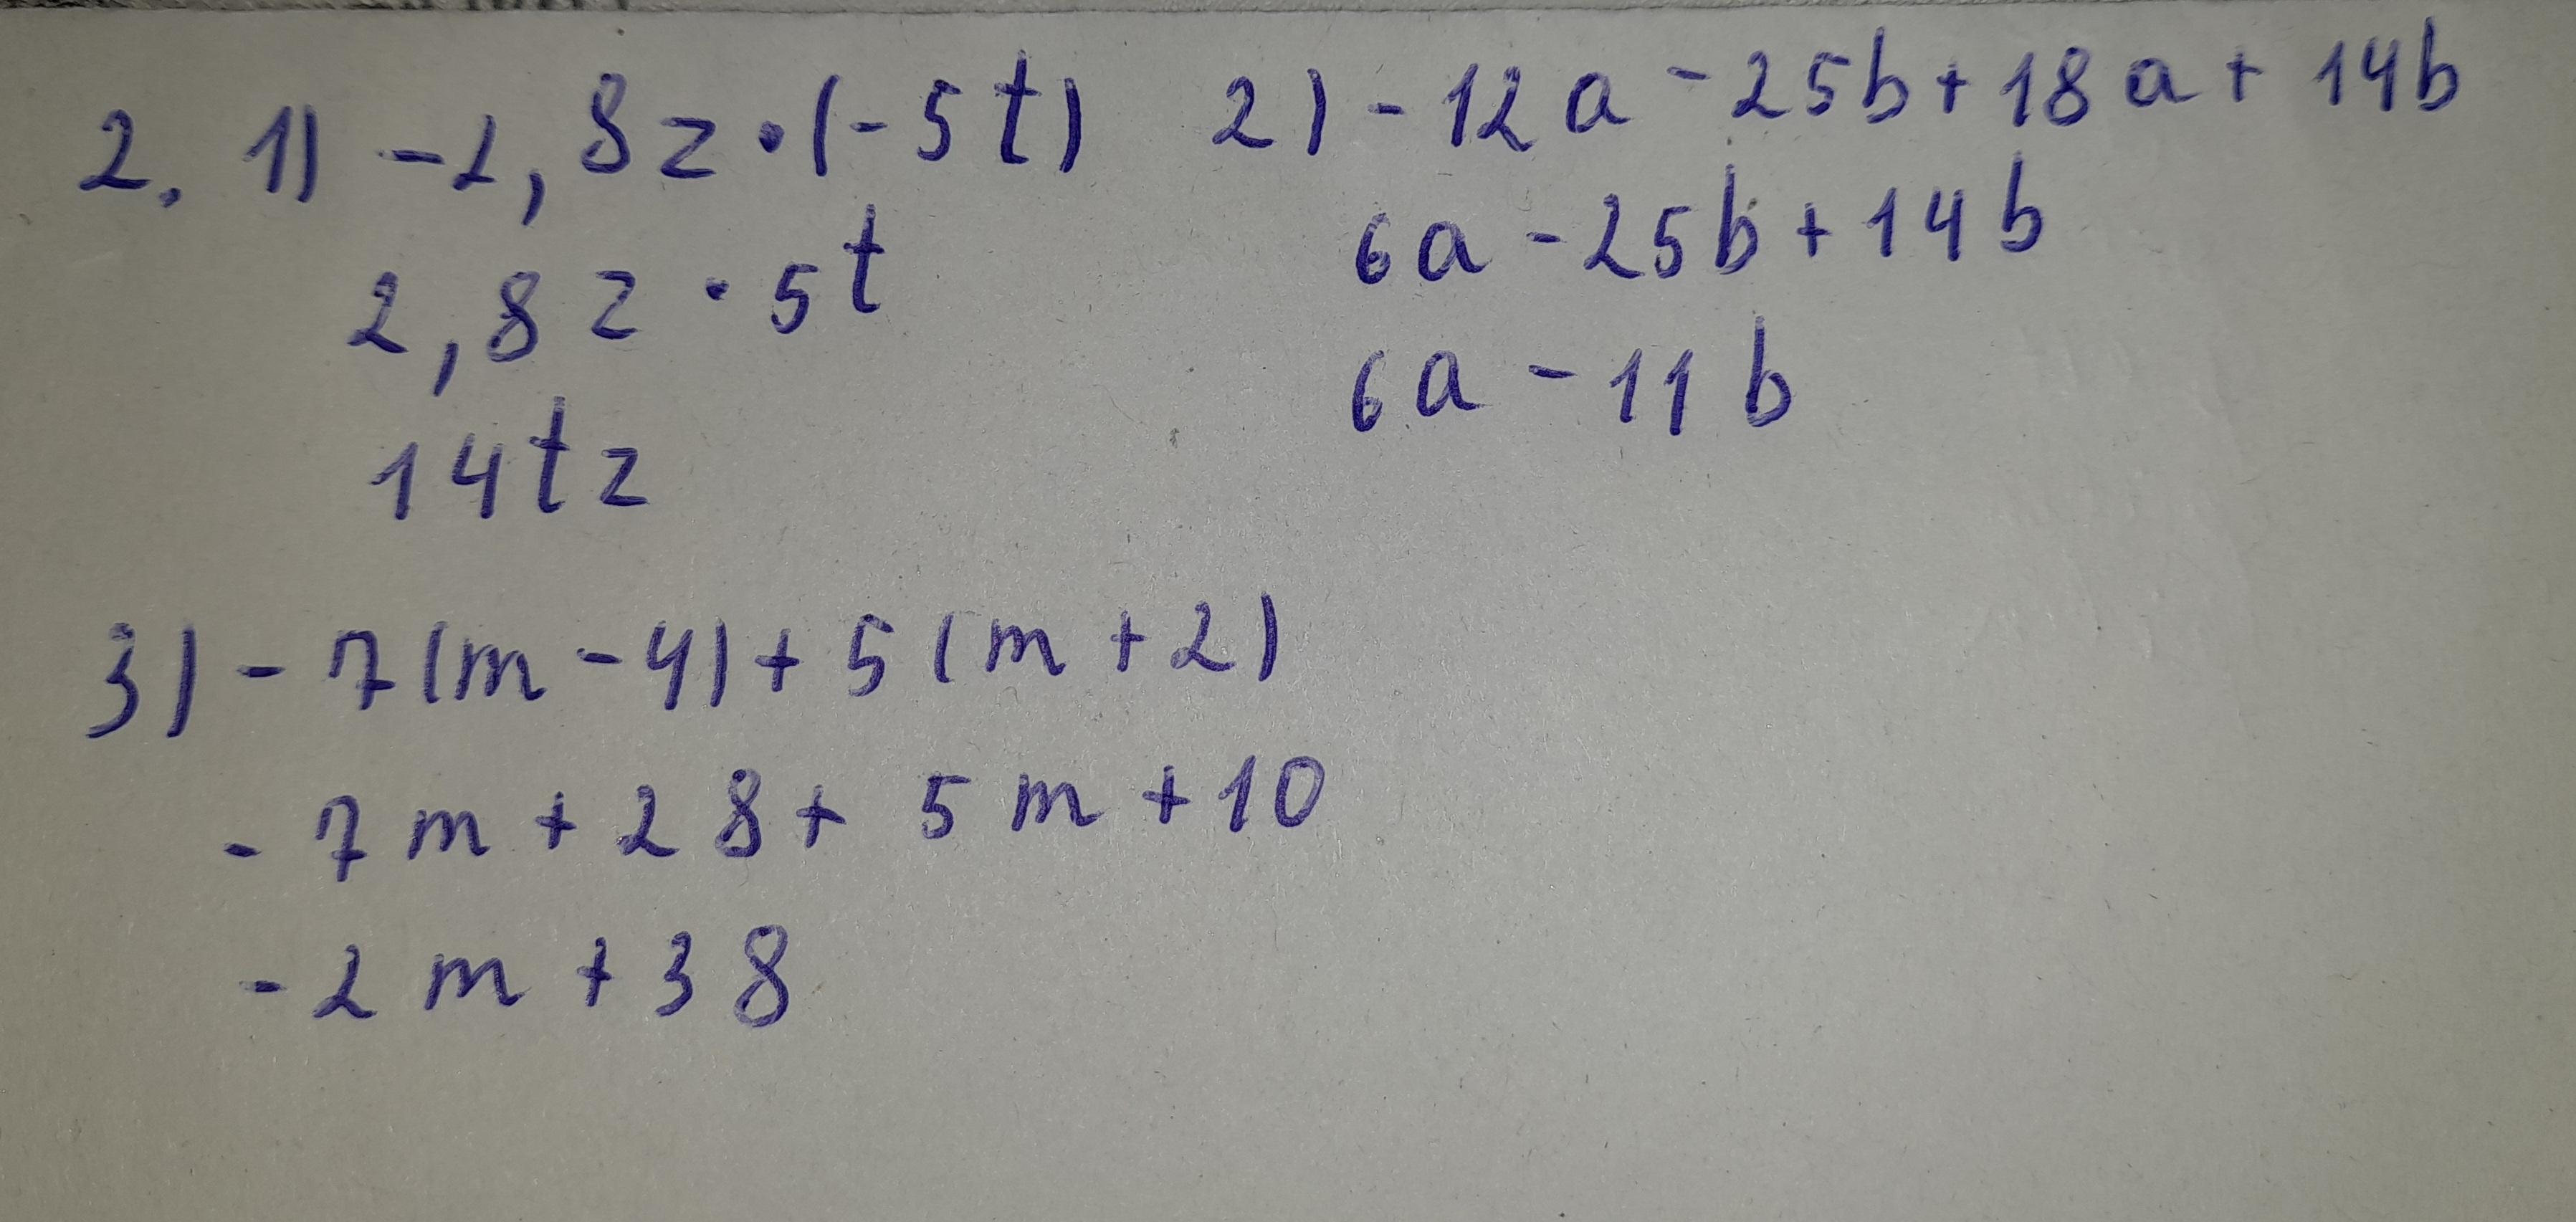 2. 1) -2,8z·(-5t)
2,8z·5t
14tz
2) -12a-25b+18a+14b
6a-25b+14b
6a-11b
3) -7(m-4)+5(m+2)
-7m+28+5m+10
-2m+38